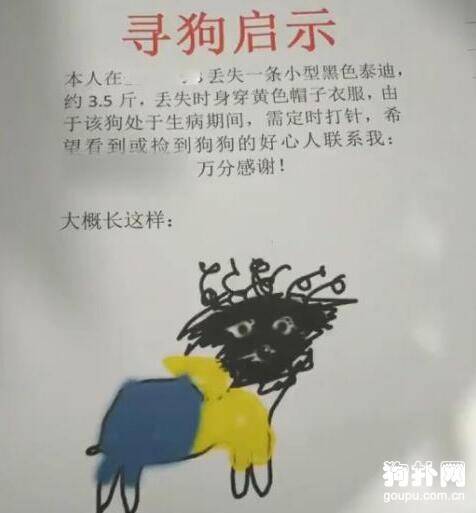 寻狗启示
本人在 丢失一条小型黑色泰迪，
约 3.5 斤，丢失时身穿黄色帽子衣服，由
于该狗处于生病期间，需定时打针，希
望看到或检到狗狗的好心人联系我：
万分感谢！
大概长这样：
狗扑网
goupu.com.cn